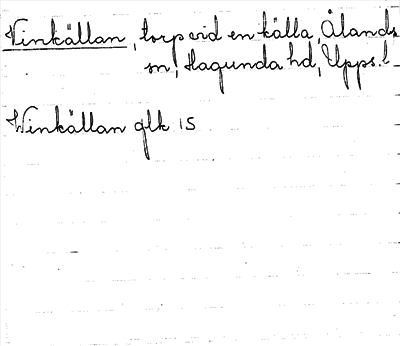 Vinkällan, torp vid en källa, Ålands
sn, Hagunda hd, Upps. l.
Winkällan glk 15